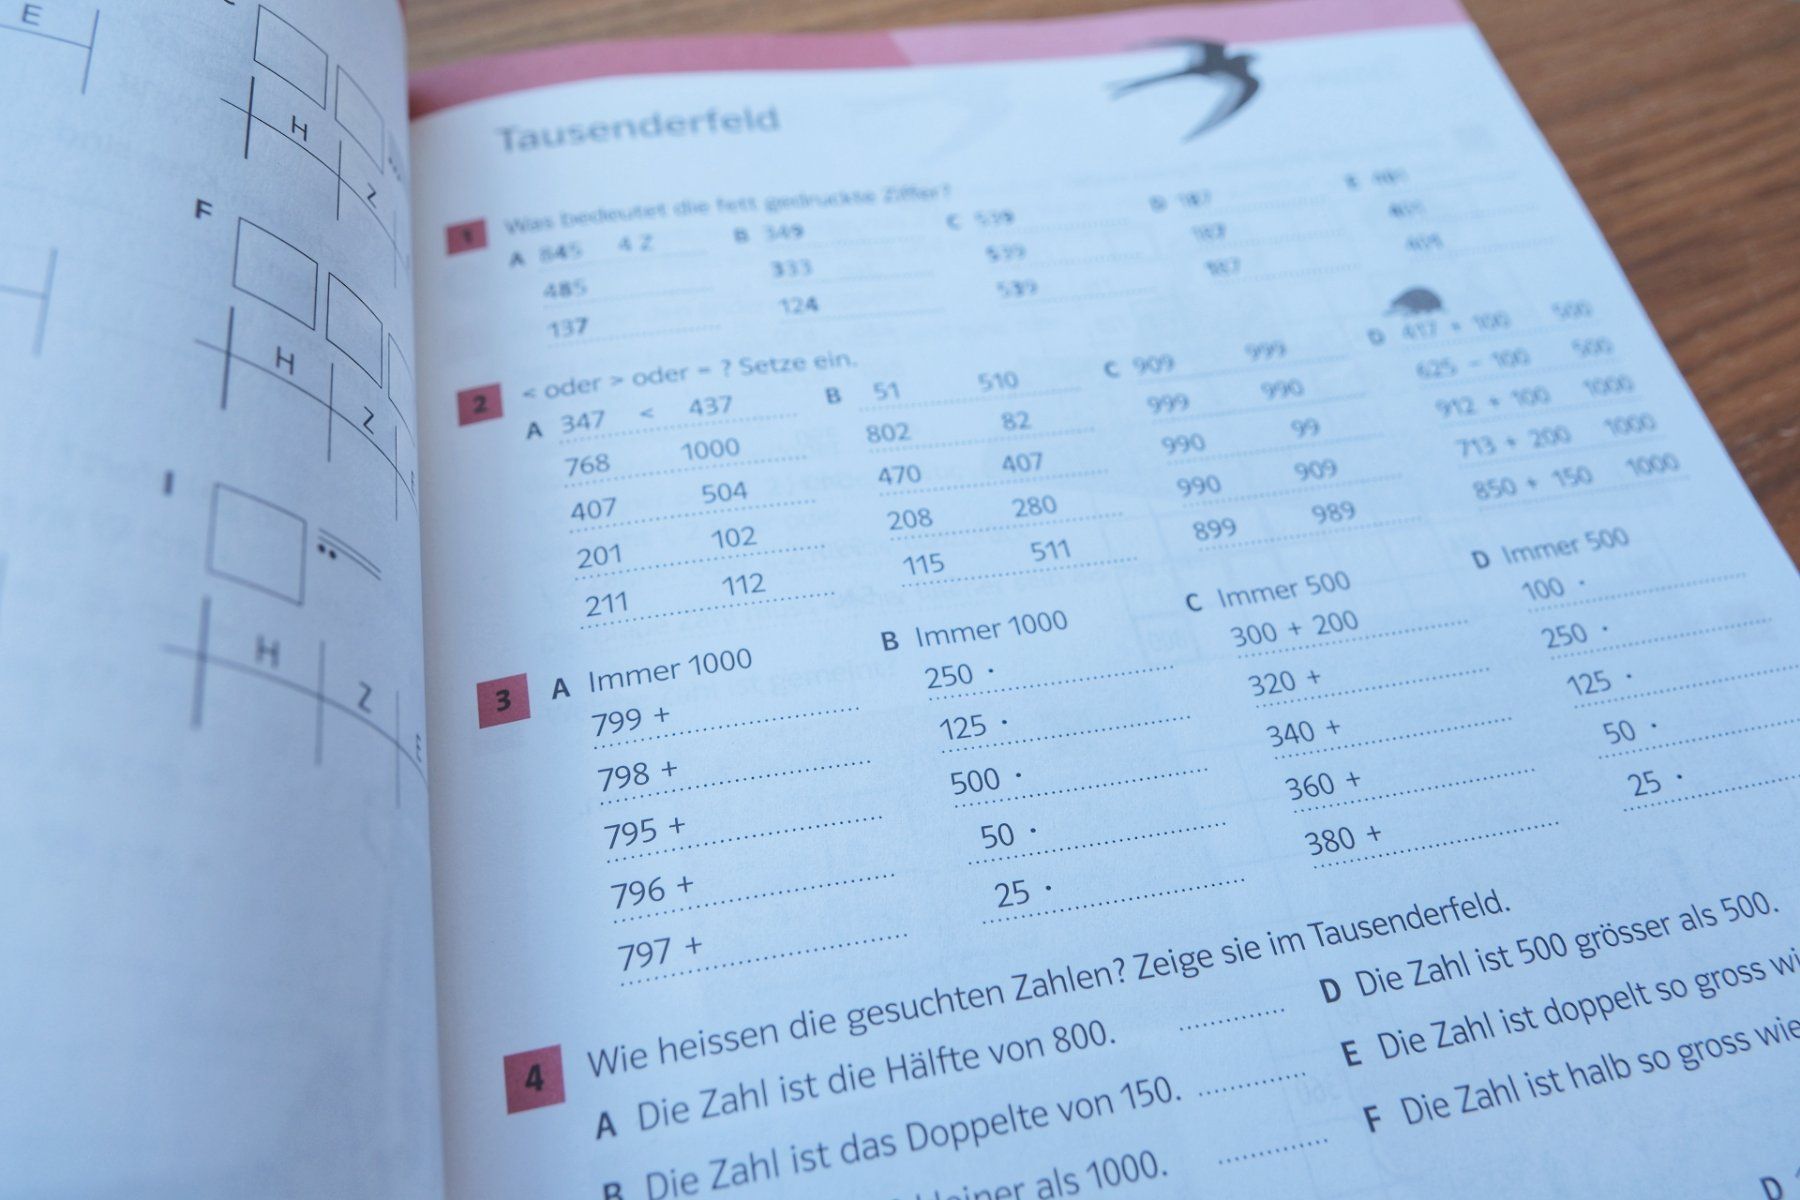 E
H
Z
F
H
Z
E
I
H
Z
E
Tausenderfeld
1 Was bedeutet die fett gedruckte Ziffer?
A 845 4 Z
485
137
B 349
333
124
C 539
539
539
D 187
187
187
2 < oder > oder = ? Setze ein.
A 347 < 437
768 1000
407 504
201 102
211 112
B 51 510
802 82
470 407
208 280
115 511
C 909 999
999 990
990 99
990 909
899 989
D 417 + 100 500
625 − 100 500
912 + 100 1000
713 + 200 1000
850 + 150 1000
3 A Immer 1000
799 +
798 +
795 +
796 +
797 +
B Immer 1000
250 ·
125 ·
500 ·
50 ·
25 ·
C Immer 500
300 + 200
320 +
340 +
360 +
380 +
D Immer 500
100 ·
250 ·
125 ·
50 ·
25 ·
4 Wie heissen die gesuchten Zahlen? Zeige sie im Tausenderfeld.
A Die Zahl ist die Hälfte von 800.
B Die Zahl ist das Doppelte von 150.
kleiner als 1000.
D Die Zahl ist 500 grösser als 500.
E Die Zahl ist doppelt so gross wi
F Die Zahl ist halb so gross wie
D